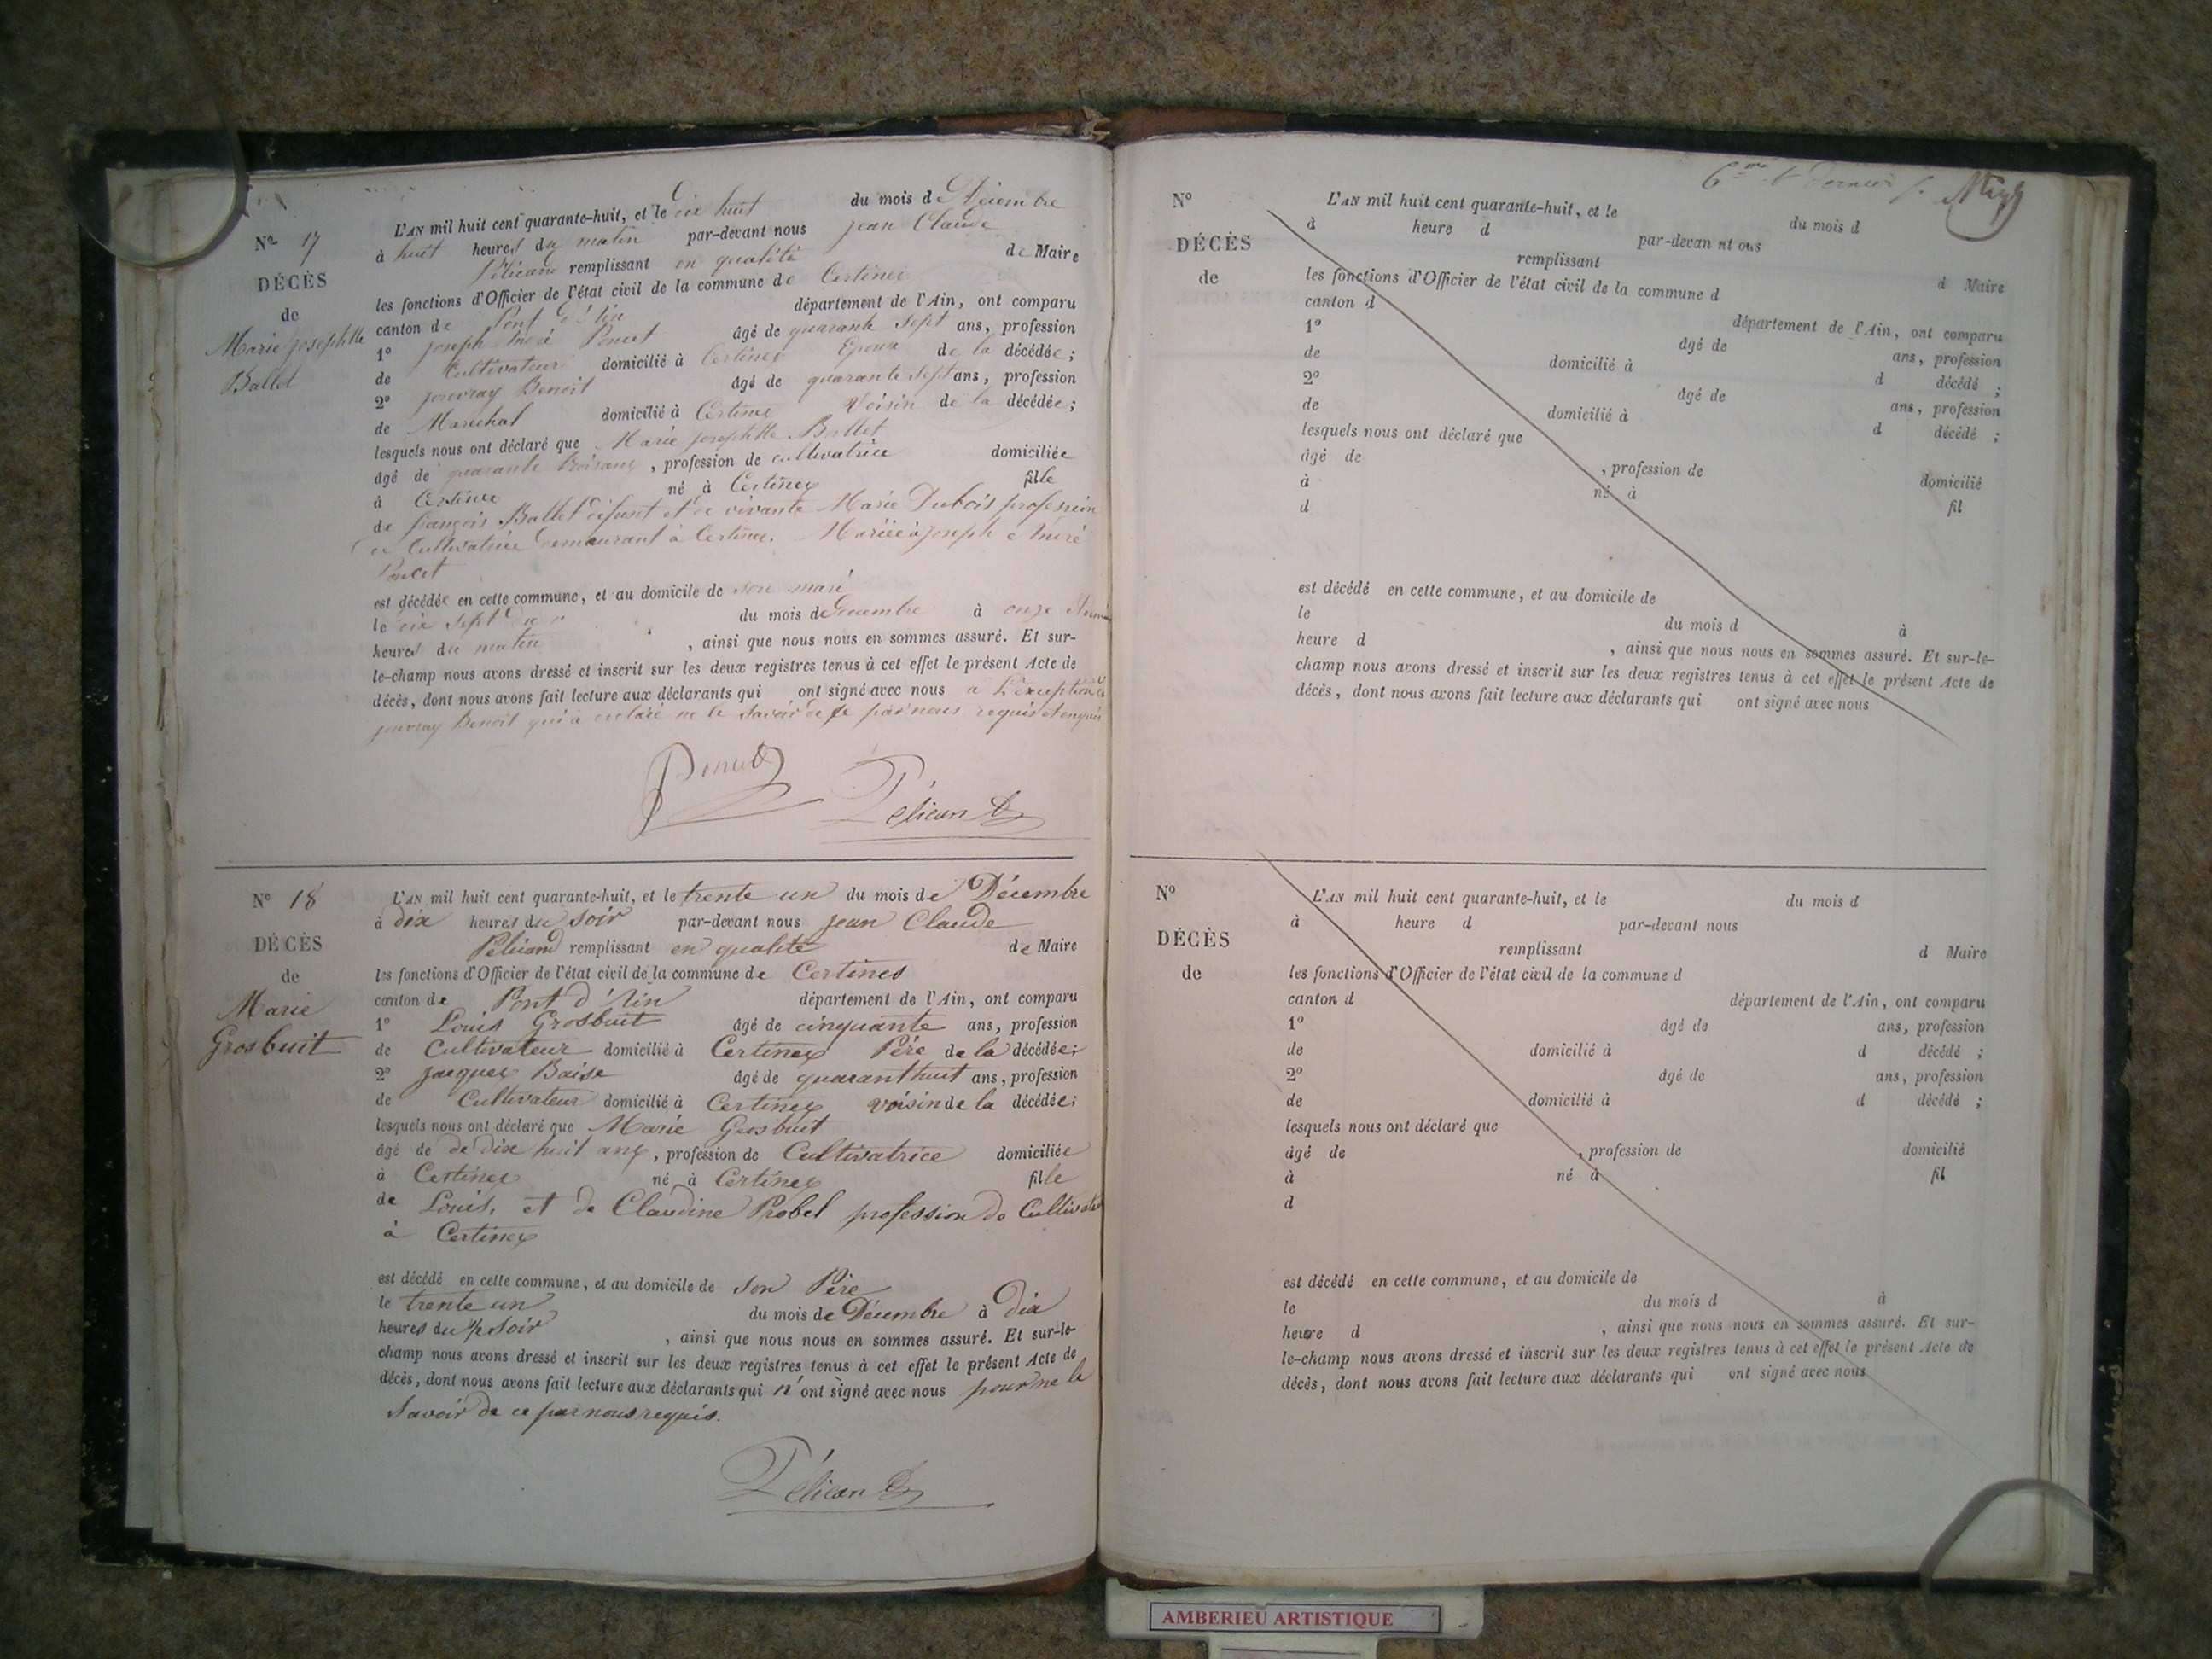 Nº 17
DÉCÈS
de
Marie Josephtte
Ballet
L'AN mil huit cent quarante-huit, et le dix huit du mois de Décembre
à huit heures du matin par-devant nous jean Claude
Pélicand remplissant en qualité de Maire
les fonctions d'Officier de l'état civil de la commune de Certines
canton de Pont d'Ain département de l'Ain, ont comparu
1º joseph André Poncet âgé de quarante sept ans, profession
de Cultivateur domicilié à Certines Epoux de la décédée;
2º jouvray Benoit âgé de quarante sept ans, profession
de Maréchal domicilié à Certines Voisin de la décédée;
lesquels nous ont déclaré que Marie josephtte Ballet
âgé de quarante trois ans, profession de cultivatrice domiciliée
à Certines né à Certines fille
de françois Ballet défunt et de vivante Marie Dubois profession
de Cultivatrice demeurant à Certines. Mariée à joseph André
Poncet
est décédée en cette commune, et au domicile de son mari
le dix sept du mois de Décembre à onze
heures du matin, ainsi que nous nous en sommes assuré. Et sur-
le-champ nous avons dressé et inscrit sur les deux registres tenus à cet effet le présent Acte de
décès, dont nous avons fait lecture aux déclarants qui ont signé avec nous a L'exception de
jouvray Benoit qui a déclaré ne le savoir de ce par nous requis
Poncet Pélicand
Nº 18
DÉCÈS
de
Marie
Grosbuit
L'AN mil huit cent quarante-huit, et le trente un du mois de Décembre
à dix heures du soir par-devant nous jean Claude
Pélicand remplissant en qualité de Maire
les fonctions d'Officier de l'état civil de la commune de Certines
canton de Pont d'Ain département de l'Ain, ont comparu
1º Louis Grosbuit âgé de cinquante ans, profession
de Cultivateur domicilié à Certines Père de la décédée;
2º jacques Baise âgé de quaranthuit ans, profession
de Cultivateur domicilié à Certines voisin de la décédée;
lesquels nous ont déclaré que Marie Grosbuit
âgé de de dix huit ans, profession de Cultivatrice domiciliée
à Certines né à Certines fille
de Louis, et de Claudine Probel profession de
à Certines
est décédé en cette commune, et au domicile de son Père
le trente un du mois de Décembre à dix
heures du soir, ainsi que nous nous en sommes assuré. Et sur-le-
champ nous avons dressé et inscrit sur les deux registres tenus à cet effet le présent Acte de
décès, dont nous avons fait lecture aux déclarants qui n'ont signé avec nous pour ne le
Savoir de ce par nous requis.
Pélicand
6me et dernier f.
Nº
DÉCÈS
de
L'AN mil huit cent quarante-huit, et le du mois d
à heure d par-devan nt ous
remplissant d Maire
les fonctions d'Officier de l'état civil de la commune d
canton d département de l'Ain, ont comparu
1º âgé de ans, profession
de domicilié à d décédé ;
2º âgé de ans, profession
de domicilié à d décédé ;
lesquels nous ont déclaré que
âgé de , profession de domicilié
à né à fil
d
est décédé en cette commune, et au domicile de
le du mois d à
heure d , ainsi que nous nous en sommes assuré. Et sur-le-
champ nous avons dressé et inscrit sur les deux registres tenus à cet effet le présent Acte de
décès, dont nous avons fait lecture aux déclarants qui ont signé avec nous
Nº
DÉCÈS
de
L'AN mil huit cent quarante-huit, et le du mois d
à heure d par-devant nous
remplissant d Maire
les fonctions d'Officier de l'état civil de la commune d
canton d département de l'Ain, ont comparu
1º âgé de ans, profession
de domicilié à d décédé ;
2º âgé de ans, profession
de domicilié à d décédé ;
lesquels nous ont déclaré que
âgé de , profession de domicilié
à né à fil
d
est décédé en cette commune, et au domicile de
le du mois d à
heure d , ainsi que nous nous en sommes assuré. Et sur-
le-champ nous avons dressé et inscrit sur les deux registres tenus à cet effet le présent Acte de
décès, dont nous avons fait lecture aux déclarants qui ont signé avec nous
AMBERIEU ARTISTIQUE